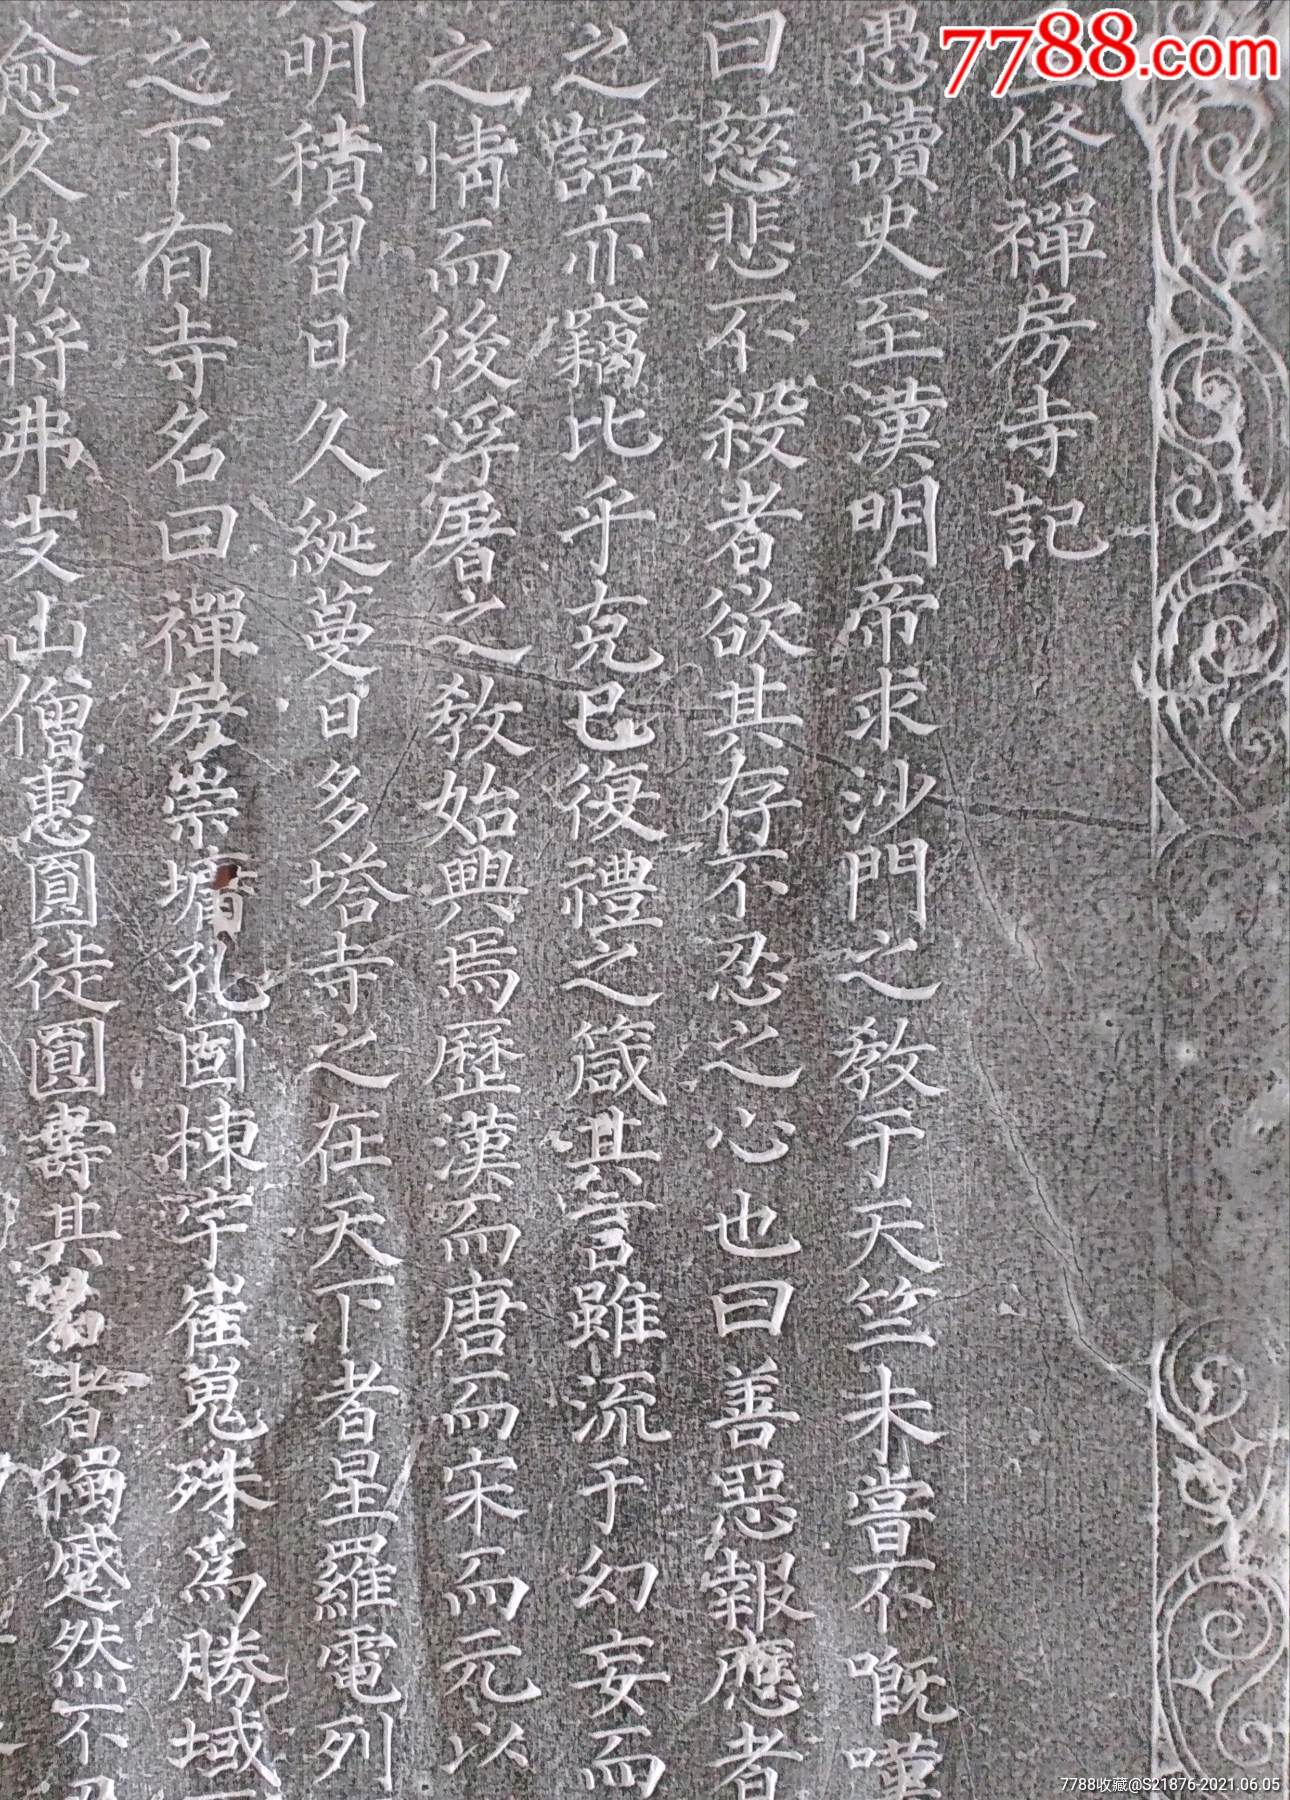 7788.com
修禪房寺記
愚讀史至漢明帝求沙門之教于天竺未嘗不嘅嘆
曰慈悲不殺者欲其存不忍之心也曰善惡報應者
之語亦竊比乎克己復禮之箴其言雖流于幻妄而
之情而後浮屠之教始興焉歷漢而唐而宋而元以
明積習日久綖蔓日多塔寺之在天下者星羅電列
之下有寺名曰禪房崇墉孔固棟宇崔嵬殊為勝域
愈久勢將弗支山僧惠圓徒圓壽其名者獨慼然不忍
7788收藏@S21876-2021.06.05